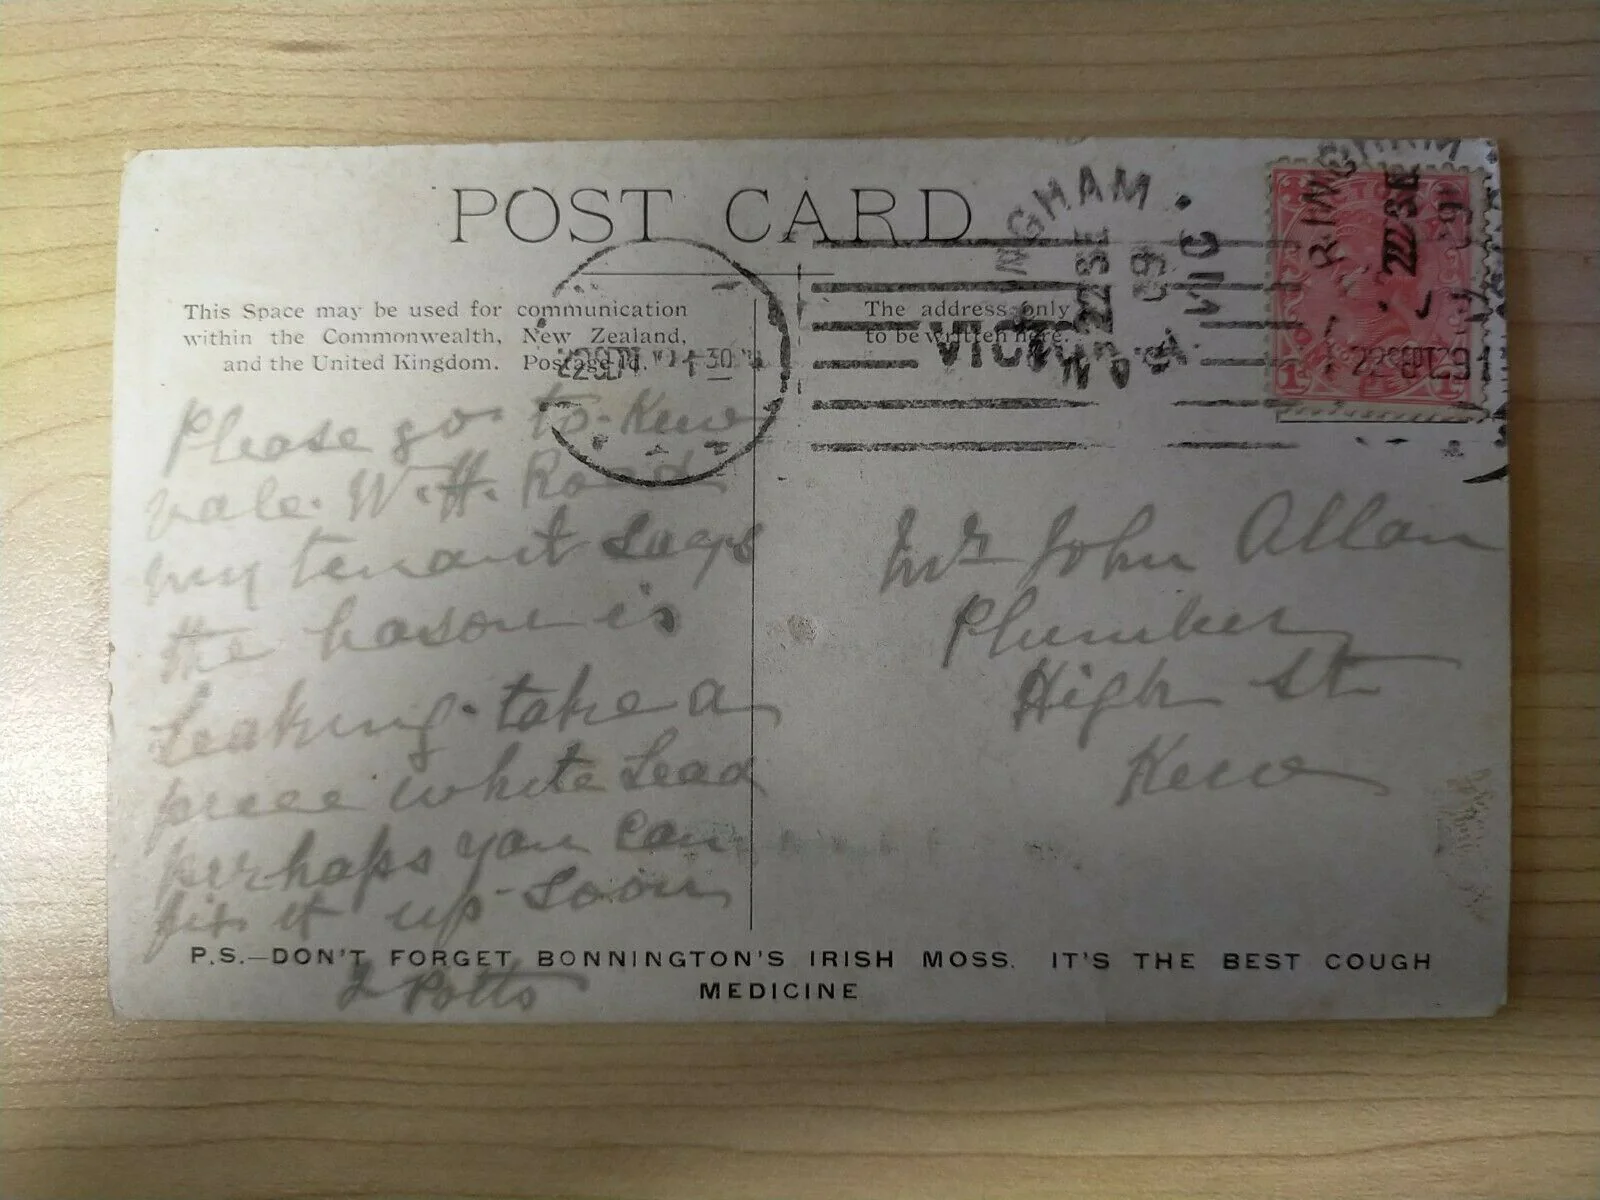 POST CARD
This Space may be used for communication
within the Commonwealth, New Zealand,
and the United Kingdom. Postage 1d.
The address only
to be written here.
RINGHAM
22 SE
VIC
NGHAM
22 SE
VIC
22 SEPT
30
22 SEPT 29
Please go to Kew
vale. W.H. Road
my tenant says
the bason is
Leaking. take a
piece white Lead
perhaps you can
fix it up Soon
Potts
Mr John Allan
Plumber
High St
Kew
P.S.—DON'T FORGET BONNINGTON'S IRISH MOSS. IT'S THE BEST COUGH
MEDICINE